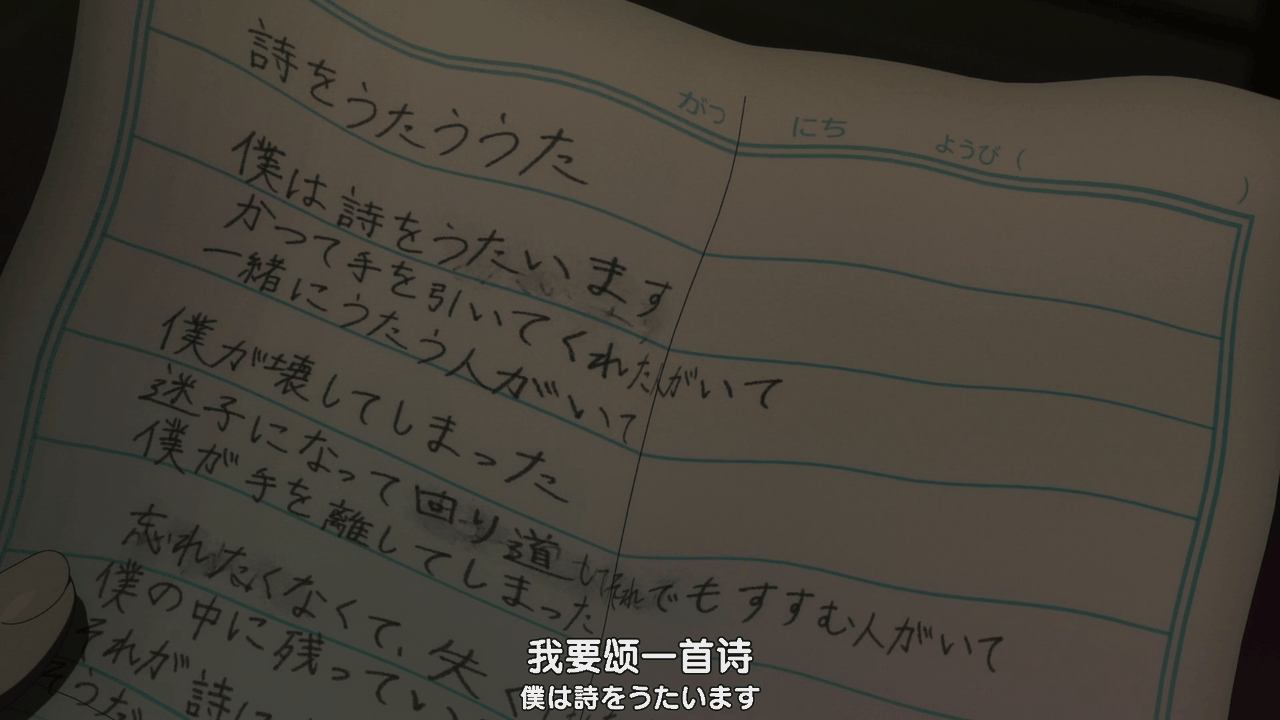 がつ にち ようび ( )
詩をうたううた
僕は詩をうたいます
かつて手を引いてくれた人がいて
一緒にうたう人がいて
僕が壊してしまった
迷子になって曲り道してそれでもすすむ人がいて
僕が手を離してしまった
忘れたくなくて、失く
僕の中に残ってい
それが詩に
そうだ
我要颂一首诗
僕は詩をうたいます